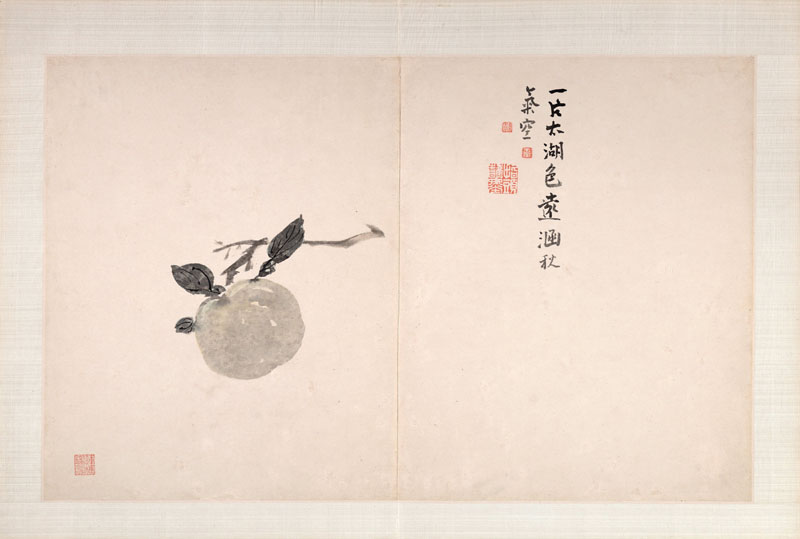 一片太湖色遠涵秋
氣空